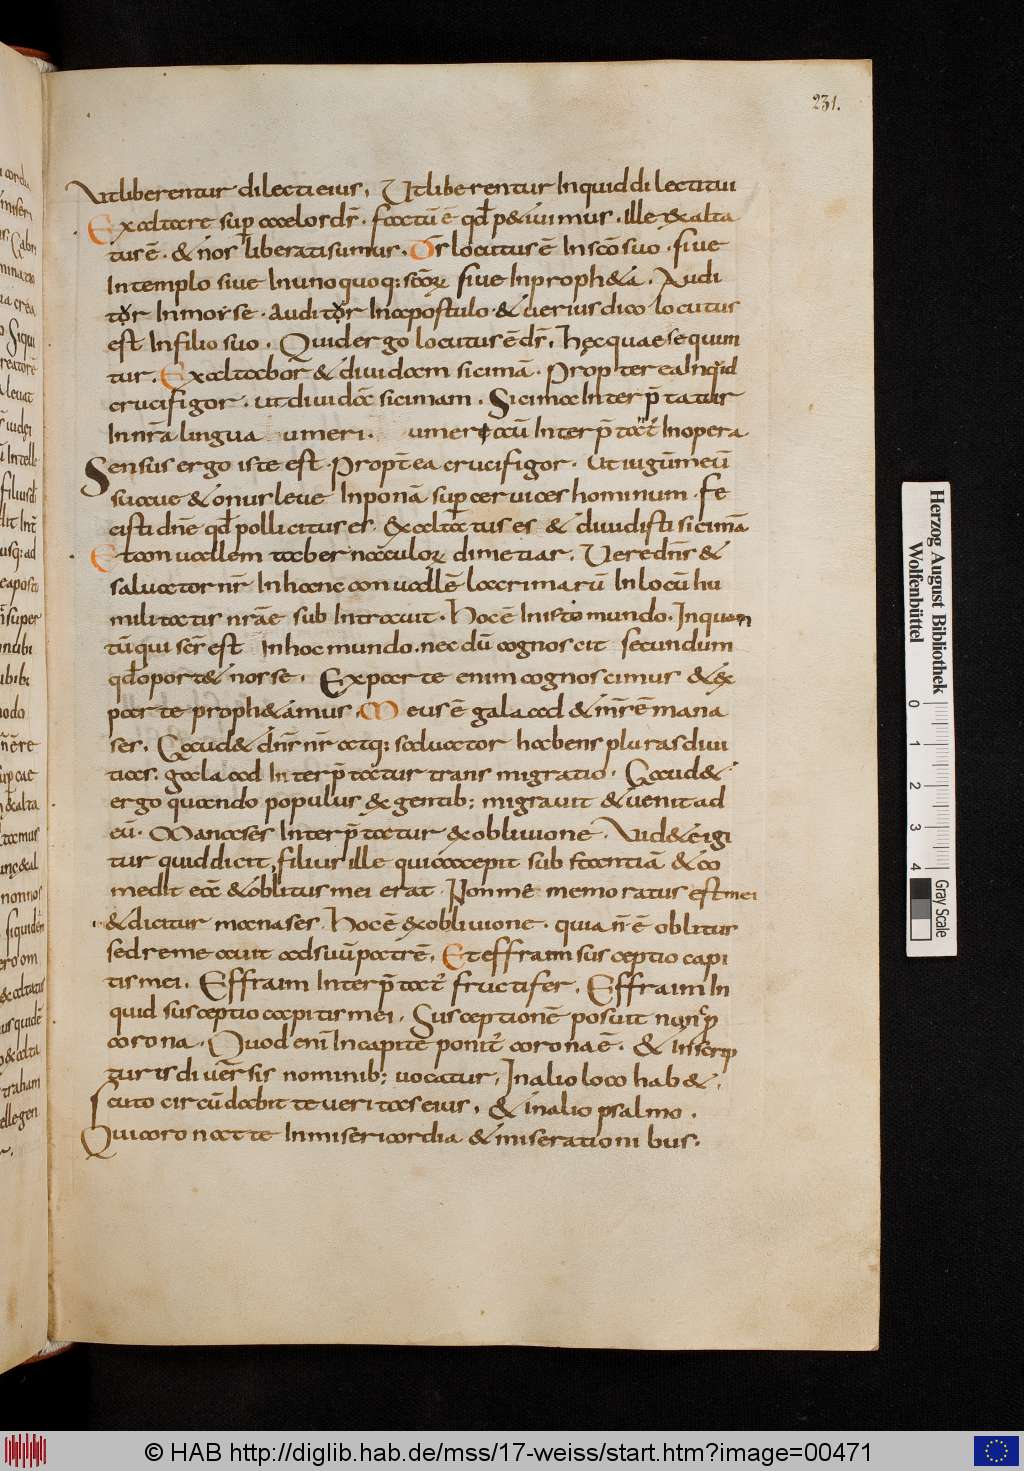 231.
Ut liberentur dilecti eius, Ut liberentur inquid dilecti tui
Exaltare sup caelos ds. factū ē qđ p&iuimus. ille exalta
tus ē. & nos liberati sumus. Ds locutus ē in scō suo. siue
In templo siue In unoquoq; scōꝝ siue In proph&a. Audi
tor In moise. auditor In apostulo. & uerius dico locutus
est In filio suo. Quid ergo locutus ē ds, hęc quae sequun
tur. Exaltabor & diuidam sicimā. Propterea Inquid
crucifigor. ut diuidā sicimam. Sicima Interp̄tatur
In nr̄a lingua umeri. umer aū Interp̄tat̄ In opera
Sensus ergo iste est. Propt̄ea crucifigor. Ut iugū meū
suaue & onus leue Inponā sup ceruices hominum. Fe
cisti dn̄e qđ pollicitus es. exaltatus es & diuidisti sicimā
Et conuallem tabernaculoꝝ dimetiar. Uere dn̄s &
saluator nr̄ In hanc conuallē lacrimarū In locū hu
militatis nr̄ae sub Intrauit. Hoc ē In isto mundo. Inquan
tū qui sēr est In hoc mundo. nec dū cognoscit secundum
qđ oport& nosse. Ex parte enim cognoscimus & ex
parte proph&amus. Meus ē galaad & m̄s ē mana
ses. Gaud& dn̄s nr̄ atq; saluator habens pluras diui
tias. galaad Interp̄tatur transmigratio. Gaud&
ergo quando populus ex gentib; migrauit & uenit ad
eū. Manases Interp̄tatur ex obliuione. Uid& igi
tur quid dicit, filius ille qui accepit substantiā & co
medit eā & oblitus mei erat. Non mē memoratus est mei
& dicitur manases. Hoc ē ex obliuione. quia n̄ ē oblitus
sed remeauit ad suū patrē. Et effraim susceptio capi
tis mei. Effraim Interp̄tat̄ fructifer. Effraim In
quid susceptio capitis mei. Susceptionē posuit nunc p
corona. Quod enī In capite ponit̄ corona ē. & In scrip
turis diuersis nominib; uocatur, In alio loco hab&,
Scuto circūdabit te ueritas eius. & in alio psalmo.
Qui coronat te In misericordia & miserationibus.
Herzog August Bibliothek
Wolfenbüttel
0 1 2 3 4
Gray Scale
© HAB http://diglib.hab.de/mss/17-weiss/start.htm?image=00471